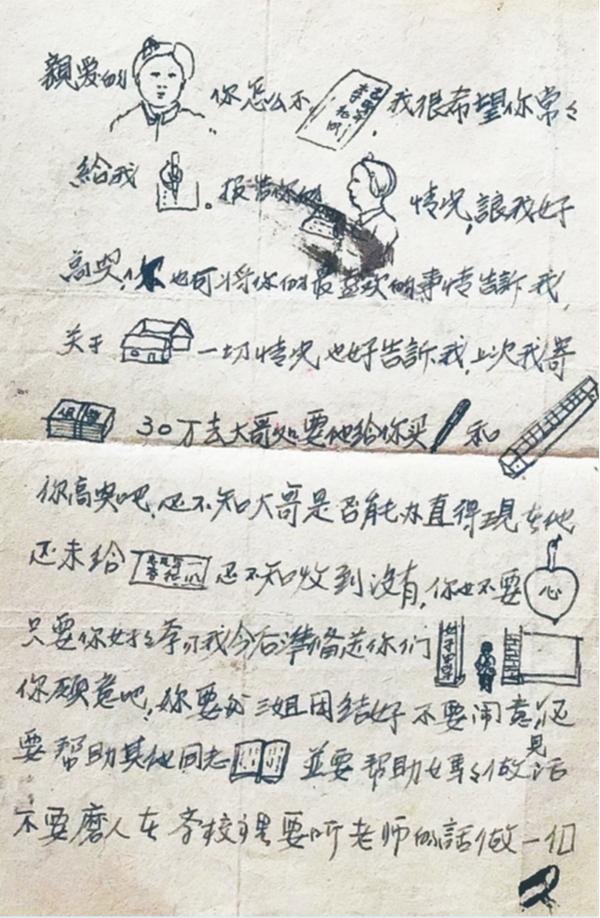 親爱的 你怎么不 我很希望你常々
給我 。报告你的 情况,讓我好
高兴,你也可将你们最喜欢的事情告訴我,
关于 一切情况也好告訴我,上次我寄
30万去大哥処要他给你买 和
你高兴吧,还不知大哥是否能办直得現在他
还未给 还不知收到没有,你也不要 心
只要你好好学习我今后準备送你们
你願意吧,你要和三姐团结好不要闹意见还
要帮助其他同志 並要帮助女事々做活
不要磨人在学校里要听老师的話做一個